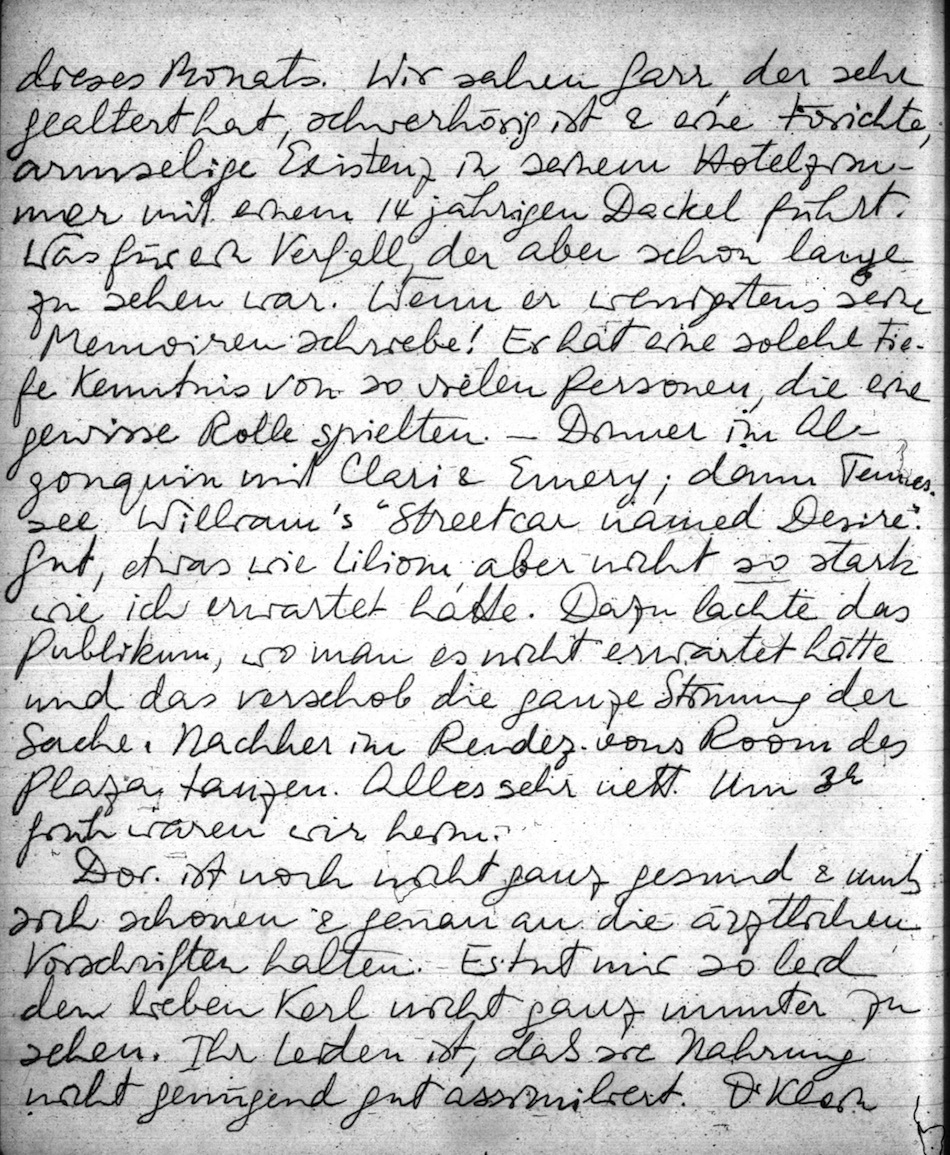 dieses Monats. Wir sahen Farr, der sehr
gealtert hat, schwerhörig ist & eine törichte,
armselige Existenz in seinem Hotelzim-
mer mit einem 14 jährigen Dackel führt.
Was für ein Verfall, der aber schon lange
zu sehen war. Wenn er wenigstens seine
Memoiren schriebe! Er hat eine solche tie-
fe Kenntnis von so vielen Personen, die eine
gewisse Rolle spielten. – Dinner im Al-
gonquin mit Clari & Emery; dann Tennes-
see William's "Streetcar named Desire".
Gut, etwas wie Liliom, aber nicht so stark
wie ich erwartet hatte. Dazu lachte das
Publikum, wo man es nicht erwartet hätte
und das verschob die ganze Stimmung der
Sache. Nachher im Rendez-vous Room des
Plaza tanzen. Alles sehr nett. Um 3h
früh waren wir heim.
Dor. ist noch nicht ganz gesund & muß
sich schonen & genau an die ärztlichen
Vorschriften halten. – Es tut mir so leid
den lieben Kerl nicht ganz munter zu
sehen. Ihr Leiden ist, daß sie Nahrung
nicht genügend gut assimiliert. Dr Klein